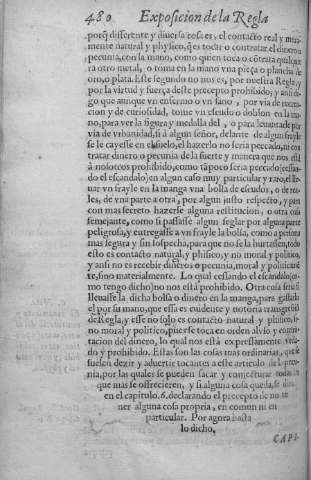 480 Exposicion de la Regla
porq̃ differente y diuersa cosa es, el contacto real y mera-
mente natural y physico, q̃ es tocar o contratar el dinero o
pecunia, con la mano, como quien toca o cõtrata qualquier
a otro metal, o toma en la mano vna pieça o plancha de
oro, o plata. Este segundo no nos es, por nuestra Regla, y
por la virtud y fuerça deste precepto prohibido; y ansi di-
go que aunque vn enfermo o vn sano, por via de recrea-
cion y de curiosidad, tome vn escudo o doblon en la ma-
no, para ver la figura y medalla del, o para leuantarle por
via de vrbanidad, si à algun señor, delante de algun frayle
se le cayesse en el suelo, el hazerlo no seria peccado, ni con
tratar dinero o pecunia de la suerte y manera que nos està
à nosotros prohibido, como tãpoco seria peccado (cessan-
do el escandalo) en algun caso muy particular y raro, el lle-
uar vn frayle en la manga vna bolsa de escudos, o de rea-
les, de vna parte a otra, por algun justo respecto, y para
con mas secreto hazerse alguna restitucion, o otra cosa
semejante, como si passasse algun seglar por alguna parte
peligrosa, y entregasse a vn frayle la bolsa, como a persona
mas segura y sin sospecha, para que no se la hurtassen, todo
esto es contacto natural, y phisico, y no moral y politico,
y ansi no es recebir dineros o pecunia, moral y politicamẽ
te, sino materialmente. Lo qual cessando el escandalo (co-
mo tengo dicho) no nos està prohibido. Otra cosa seria si
lleuasse la dicha bolsa o dinero en la manga, para gastarlo
el por su mano, que essa es euidente y notoria transgressiõ
de Regla, y esse no solo es contacto natural y phisico, si-
no moral y politico, pues se toca en orden al vso y comu-
tacion del dinero, lo qual nos està expressamente veda-
do y prohibido. Estas son las cosas mas ordinarias, que se
suelen dezir y aduertir tocantes a este articulo de la pecu-
nia, por las quales se pueden sacar y conjecturar todas las
que mas se offrecieren, y si alguna cosa queda, se dira
en el capitulo. 6. declarando el precepto de no te-
ner alguna cosa propria, en comun ni en
particular. Por agora basta
lo dicho,
CAPI-